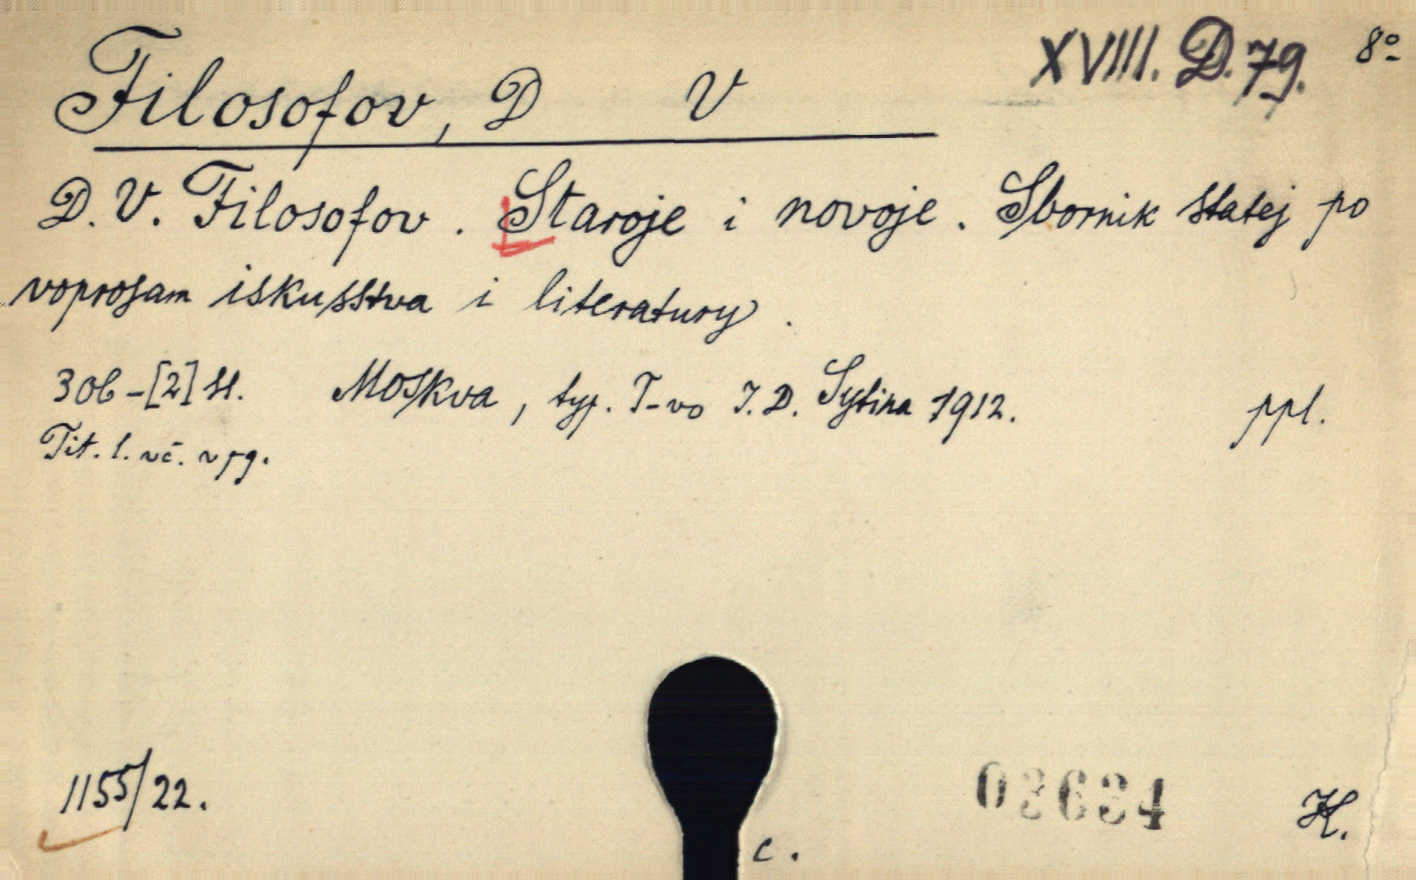 XVIII. D. 79. 8º
Filosofov, D V
D. V. Filosofov. Staroje i novoje. Sbornik statej po
voprosam iskusstva i literatury.
306-[2] st. Moskva, typ. T-vo I. D. Sytina 1912. ppl.
Tit. l. vč. v pg.
1155/22.
03634
H.
c.